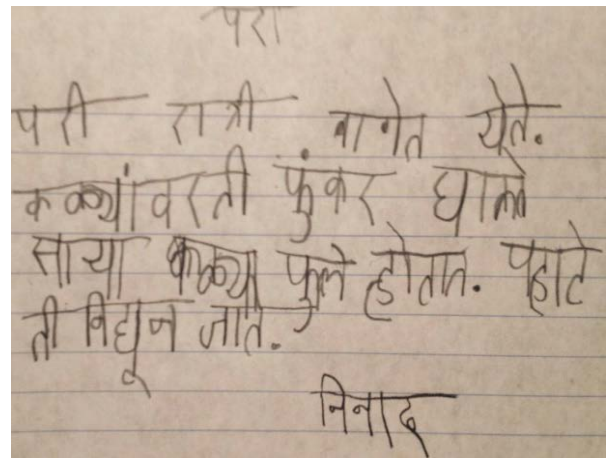 परी
परी रात्री बागेत येते.
कळ्यांवरती फुंकर घालते
साया कळ्या फुले होतात. पहाटे
ती निघून जाते.
निनाद